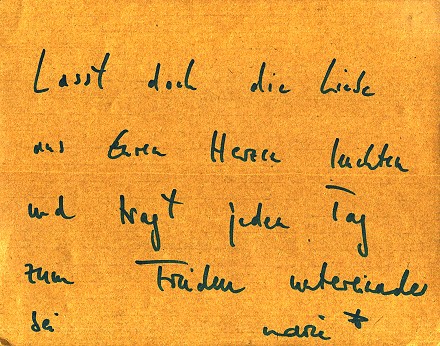 Lasst doch die Liebe
aus Euren Herzen leuchten
und tragt jeden Tag
zum Frieden untereinander
bei marie *